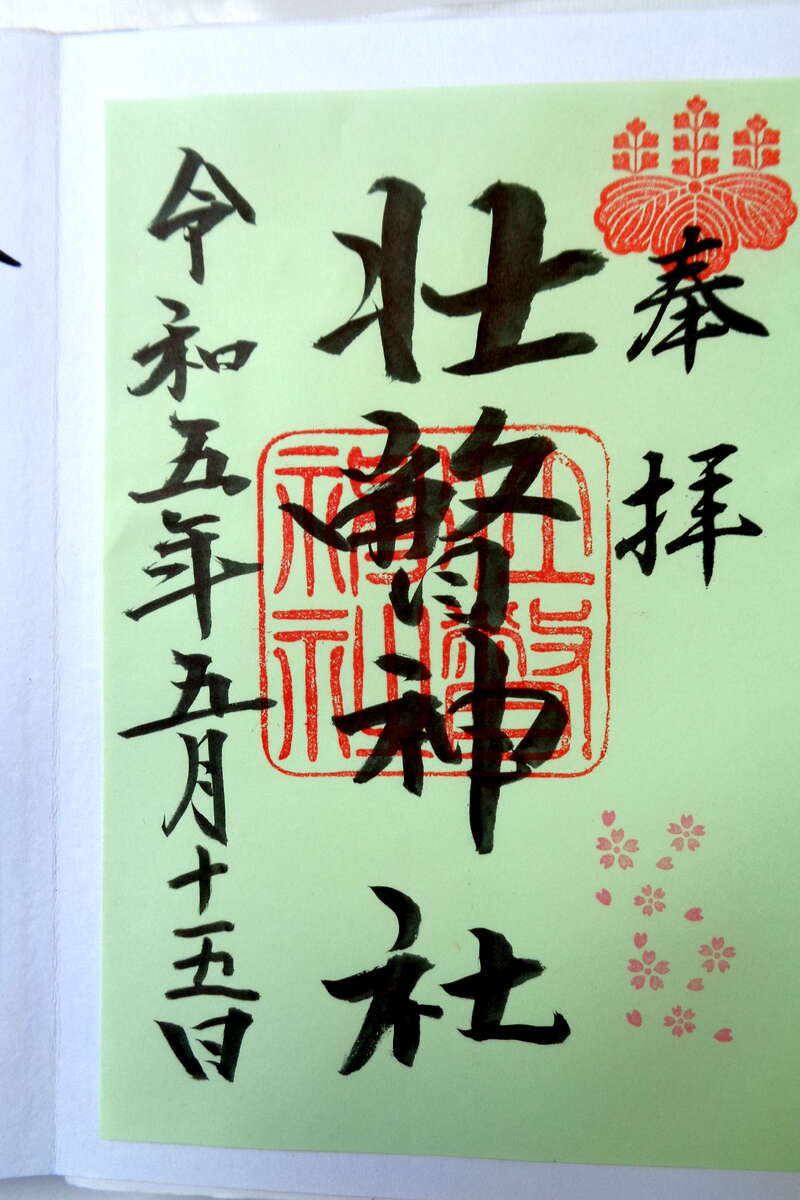 奉拝
壮瞥神社
壮瞥神社
令和五年五月十五日